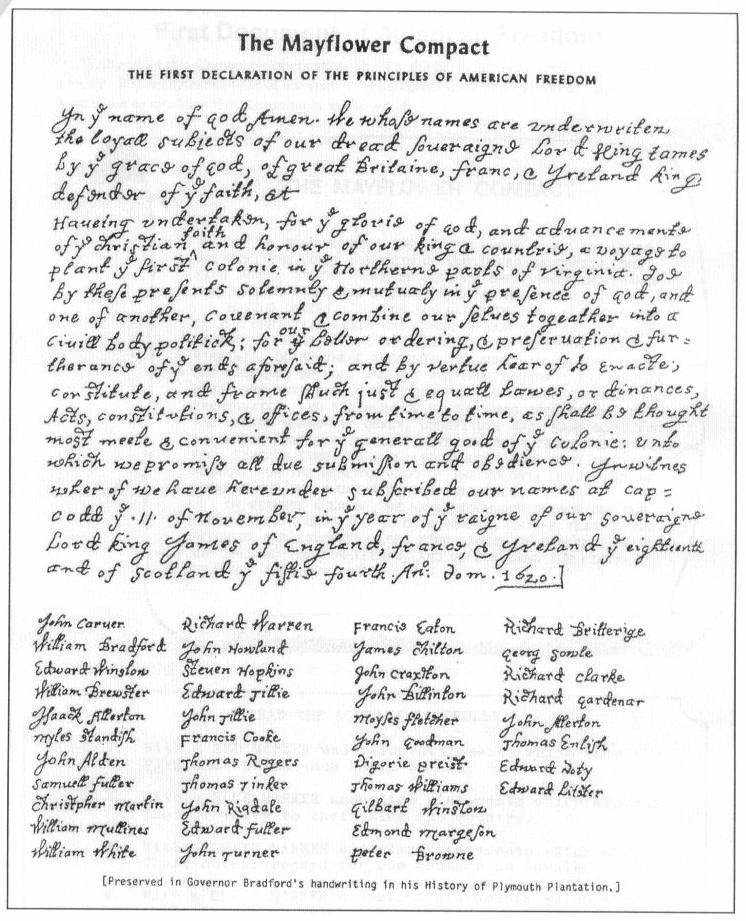 The Mayflower Compact
THE FIRST DECLARATION OF THE PRINCIPLES OF AMERICAN FREEDOM
In yᵉ name of god Amen. We whose names are underwriten,
the loyall subjects of our dread soveraigne Lord King James
by yᵉ grace of god, of great Britaine, franc, & Yreland king,
defender of yᵉ faith, &c
Haveing undertaken, for yᵉ glorie of god, and advancemente
of yᵉ christian ^ faith and honour of our king & countrie, a voyage to
plant yᵉ first colonie in yᵉ Northerne parts of Virginia. Doe
by these presents solemnly & mutualy in yᵉ presence of god, and
one of another, covenant & combine our selves togeather into a
civill body politick; for our better ordering, & preservation & fur=
therance of yᵉ ends aforesaid; and by vertue hearof to enacte,
constitute, and frame shuch just & equall lawes, ordinances,
Acts, constitutions, & offices, from time to time, as shall be thought
most meete & convenient for yᵉ generall good of yᵉ colonie: unto
which we promise all due submission and obedience. In witnes
wherof we have hereunder subscribed our names at cap=
codd yᵉ .11. of November, in yᵉ year of yᵉ raigne of our soveraigne
Lord king James of England, france, & Yreland yᵉ eighteenth
and of Scotland yᵉ fiftie fourth. Anᵒ. dom. 1620.]
John Carver
William Bradford
Edward Winslow
William Brewster
Isaack Allerton
Myles Standish
John Alden
Samuell Fuller
Christpher Martin
William Mullines
William White
Richard Warren
John Howland
Steven Hopkins
Edward Tillie
John Tillie
Francis Cooke
Thomas Rogers
Thomas Tinker
John Rigdale
Edward Fuller
John Turner
Francis Eaton
James Chilton
John Craxton
John Billinton
Moyses Fletcher
John Goodman
Digorie Preist
Thomas Williams
Gilbart Winslow
Edmond Margeson
Peter Browne
Richard Britterige
Georg Sowle
Richard Clarke
Richard Gardenar
John Allerton
Thomas Enlish
Edward Doty
Edward Litster
[Preserved in Governor Bradford's handwriting in his History of Plymouth Plantation.]